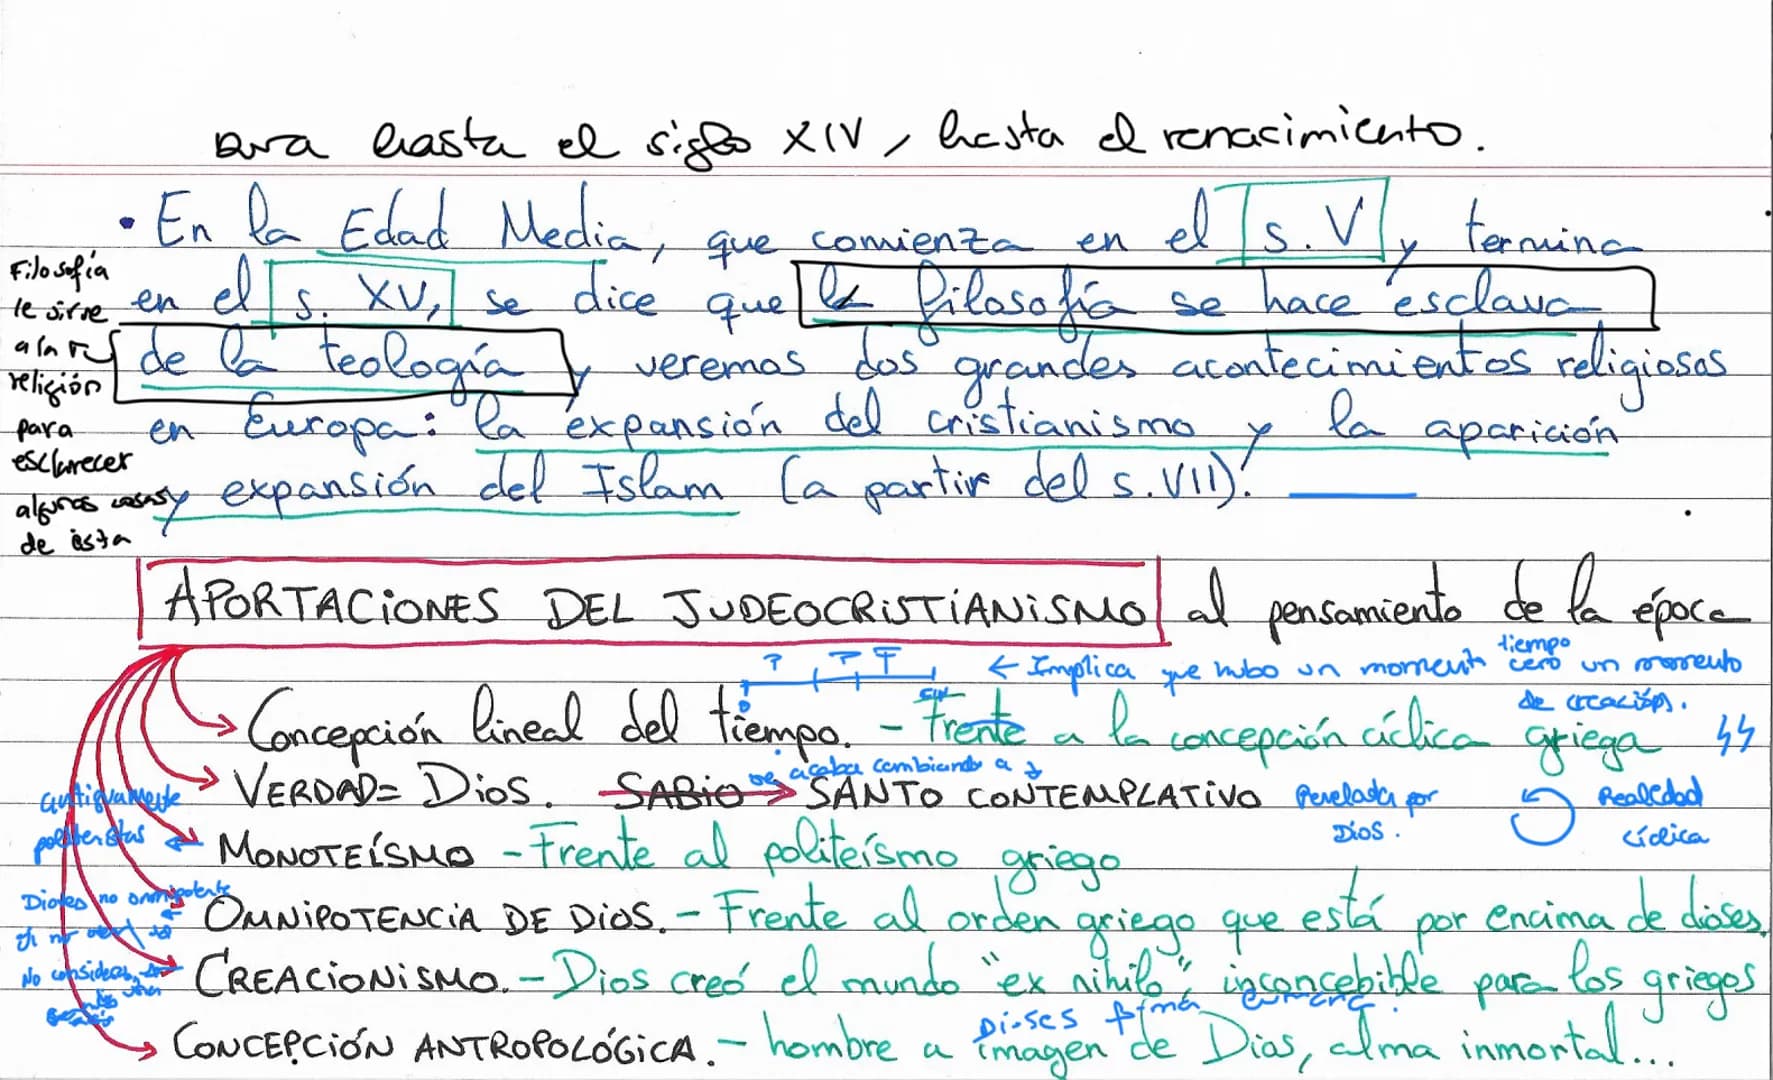 hasta el siglo XIV, hasta el renacimiento.
• En la Edad Media, que comienza en el s. V y termina
en el s. XV, se dice que la filosofía se hace esclava
de la teología y veremos dos grandes acontecimientos religiosos
en Europa: la expansión del cristianismo y la aparición
y expansión del Islam (a partir del s. VII).
Filosofía
le sirve
a la
religión
para
esclarecer
algunas cosas
de ésta
APORTACIONES DEL JUDEOCRISTIANISMO al pensamiento de la época
? ? ← Implica que hubo un momento tiempo cero un momento
de creación.
Concepción lineal del tiempo. - Frente a la concepción cíclica griega
se acaba cambiando a
VERDAD = Dios. SABIO → SANTO CONTEMPLATIVO Revelada por
Dios.
Realidad
cíclica
antiguamente
politeistas
MONOTEÍSMO - Frente al politeísmo griego
Dioses no omnipotente
OMNIPOTENCIA DE DIOS. - Frente al orden griego que está por encima de dioses.
No
CREACIONISMO. - Dios creó el mundo "ex nihilo", inconcebible para los griegos
Dioses forma humana.
CONCEPCIÓN ANTROPOLÓGICA. - hombre a imagen de Dios, alma inmortal...